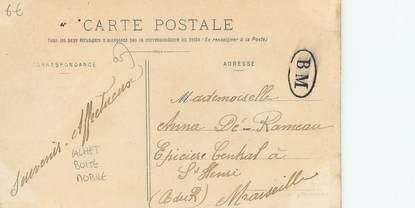 6€
CARTE POSTALE
Tous les pays étrangers n'acceptent pas la correspondance au recto (Se renseigner à la Poste)
CORRESPONDANCE
ADRESSE
BM
Souvenir Affectueux
CACHET
BOITE
MOBILE
Mademoiselle
Anna Dé-Rameau
Epiciere Central à
St Henri
(B du R) Marseille